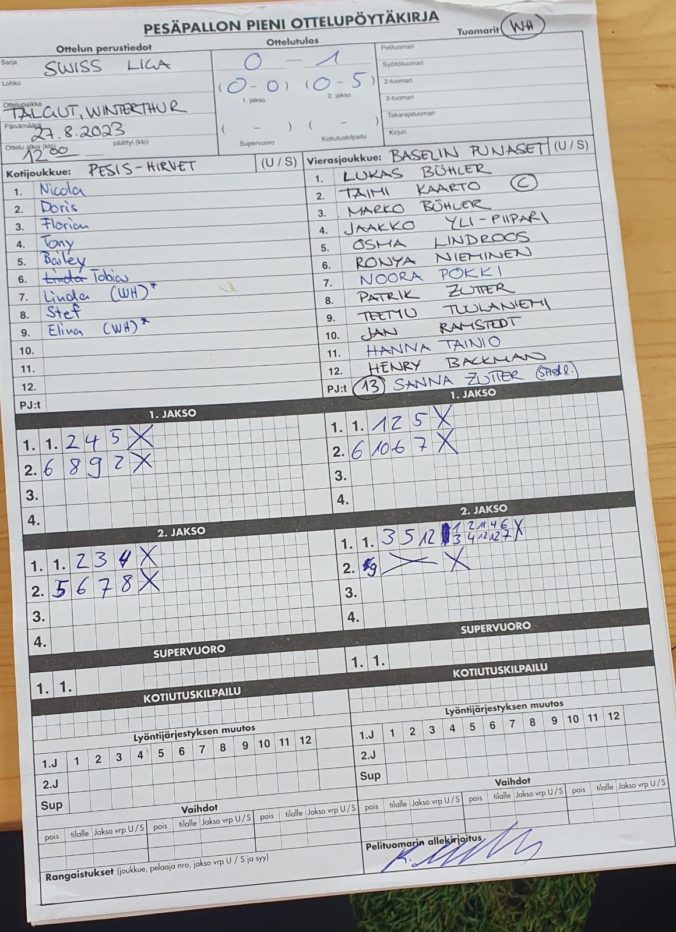 PESÄPALLON PIENI OTTELUPÖYTÄKIRJA
Ottelun perustiedot
Ottelutulos
Tuomarit WH
Sarja SWISS LIGA
Lohko
Ottelupaikka TALGUT, WINTERTHUR
Päivämäärä 27.8.2023
Ottelu alkoi (klo) 12 00 päättyi (klo)
0 - 1
(0-0) (0-5)
1. jakso 2. jakso
( - ) ( - )
Supervuoro Kotiutuskilpailu
Pelituomari
Syöttötuomari
2-tuomari
3-tuomari
Takarajatuomari
Kirjuri
Kotijoukkue: PESIS-HIRVET (U / S)
1. Nicola
2. Doris
3. Florian
4. Tony
5. Bailey
6. Linda Tobias
7. Linda (WH)*
8. Stef
9. Elina (WH)*
10.
11.
12.
PJ:t
Vierasjoukkue: BASELIN PUNASET (U / S)
1. LUKAS BÜHLER
2. TAIMI KAARTO C
3. MARKO BÜHLER
4. JAAKKO YLI-PIIPARI
5. OSMA LINDROOS
6. RONYA NIEMINEN
7. NOORA POKKI
8. PATRIK ZUTER
9. TEEMU TUULANIEMI
10. JAN RAMSTEDT
11. HANNA TAINIO
12. HENRY BACKMAN
PJ:t 13 SANNA ZUTER
1. JAKSO
1. 1. 2 4 5 X
2. 6 8 9 2 X
3.
4.
1. JAKSO
1. 1. 1 2 5 X
2. 6 10 6 7 X
3.
4.
2. JAKSO
1. 1. 2 3 4 X
2. 5 6 7 8 X
3.
4.
2. JAKSO
1. 1. 3 5 12
2. 9 X
3.
4.
SUPERVUORO
1. 1.
SUPERVUORO
1. 1.
KOTIUTUSKILPAILU
KOTIUTUSKILPAILU
Lyöntijärjestyksen muutos
1.J 1 2 3 4 5 6 7 8 9 10 11 12
2.J
Sup
Lyöntijärjestyksen muutos
1.J 1 2 3 4 5 6 7 8 9 10 11 12
2.J
Sup
Vaihdot
pois tilalle Jakso vrp U / S pois tilalle Jakso vrp U / S pois tilalle Jakso vrp U / S
Vaihdot
pois tilalle Jakso vrp U / S pois tilalle Jakso vrp U / S pois tilalle Jakso vrp U / S
Rangaistukset (joukkue, pelaaja nro, jakso vrp U / S ja syy)
Pelituomarin allekirjoitus